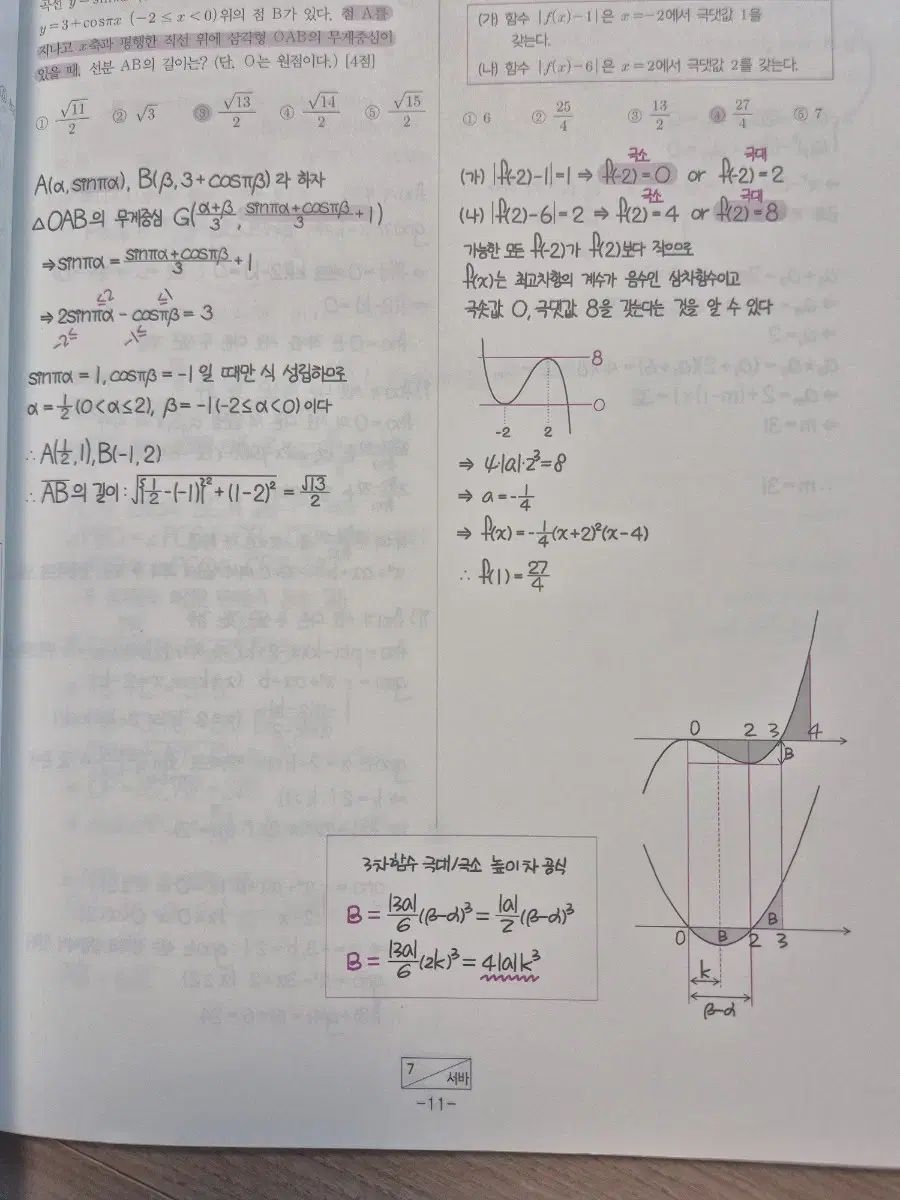 곡선 y=sin
y=3+cosπx (-2≤x<0)위의 점 B가 있다. 점 A를
지나고 x축과 평행한 직선 위에 삼각형 OAB의 무게중심이
있을 때, 선분 AB의 길이는? (단, O는 원점이다.) [4점]
① √11/2 ② √3 ③ √13/2 ④ √14/2 ⑤ √15/2
A(α, sinπα), B(β, 3+cosπβ)라 하자
△OAB의 무게중심 G((α+β)/3, (sinπα+cosπβ)/3+1)
⇒ sinπα = (sinπα+cosπβ)/3 + 1
≤2 ≤1
⇒ 2sinπα - cosπβ = 3
-2≤ -1≤
sinπα = 1, cosπβ = -1 일 때만 식 성립하므로
α = 1/2 (0<α≤2), β = -1 (-2≤α<0)이다
∴ A(1/2, 1), B(-1, 2)
∴ AB의 길이 : √({1/2-(-1)}²+(1-2)²) = √13/2
(가) 함수 |f(x)-1|은 x=-2에서 극댓값 1을
갖는다.
(나) 함수 |f(x)-6|은 x=2에서 극댓값 2를 갖는다.
① 6 ② 25/4 ③ 13/2 ④ 27/4 ⑤ 7
극소 극대
(가) |f(-2)-1|=1 ⇒ f(-2)=0 or f(-2)=2
극소 극대
(나) |f(2)-6|=2 ⇒ f(2)=4 or f(2)=8
가능한 모든 f(-2)가 f(2)보다 작으므로
f(x)는 최고차항의 계수가 음수인 삼차함수이고
극솟값 0, 극댓값 8을 갖는다는 것을 알 수 있다
8
0
-2 2
⇒ 4·|a|·2³=8
⇒ a=-1/4
⇒ f(x)=-1/4(x+2)²(x-4)
∴ f(1)=27/4
0 2 3 4
B
0 B 2 B 3
k
β-α
3차함수 극대/극소 높이차 공식
B = |3a|/6 (β-α)³ = |a|/2 (β-α)³
B = |3a|/6 (2k)³ = 4|a|k³
7 서바
-11-